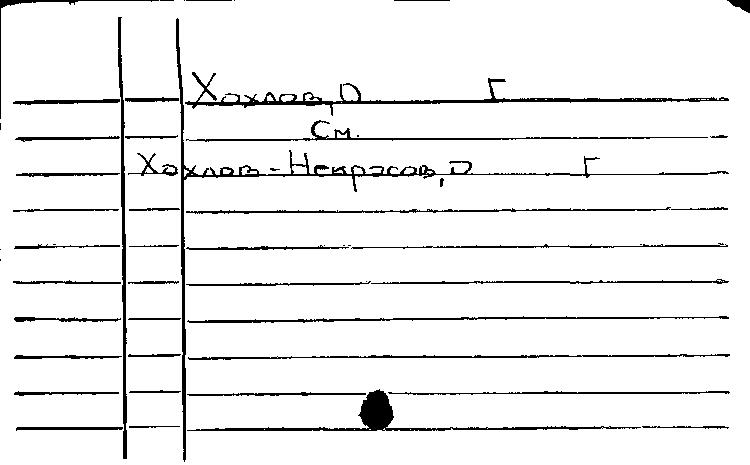 Хохлов, О Г
См.
Хохлов-Некрасов, О Г